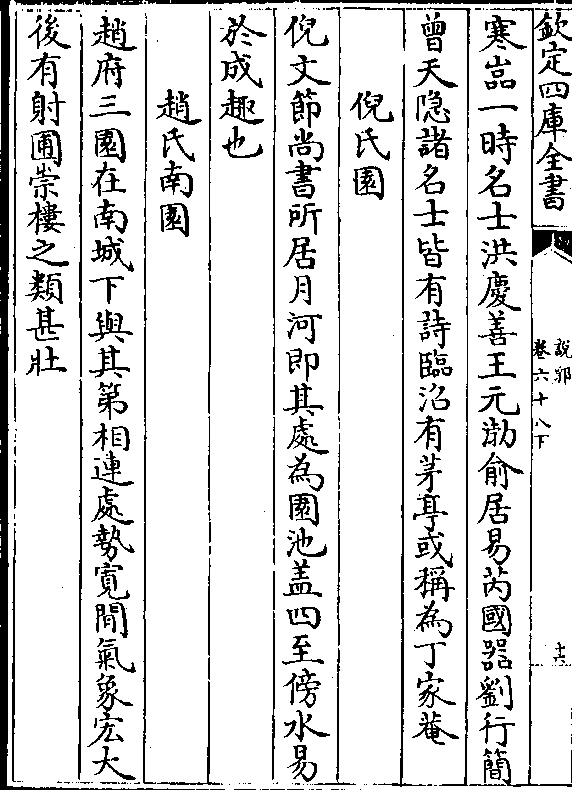 欽定四庫全書
說郛
卷六十八下
十六
寒嵓一時名士洪慶善王元渤俞居易芮國器劉行簡
曾天隐諸名士皆有詩臨沼有茅亭或稱為丁家菴
倪氏園
倪文節尚書所居月河即其處為園池盖四至傍水易
於成趣也
趙氏南園
趙府三園在南城下與其第相連處勢寛閒氣象宏大
後有射圃崇樓之類甚壯